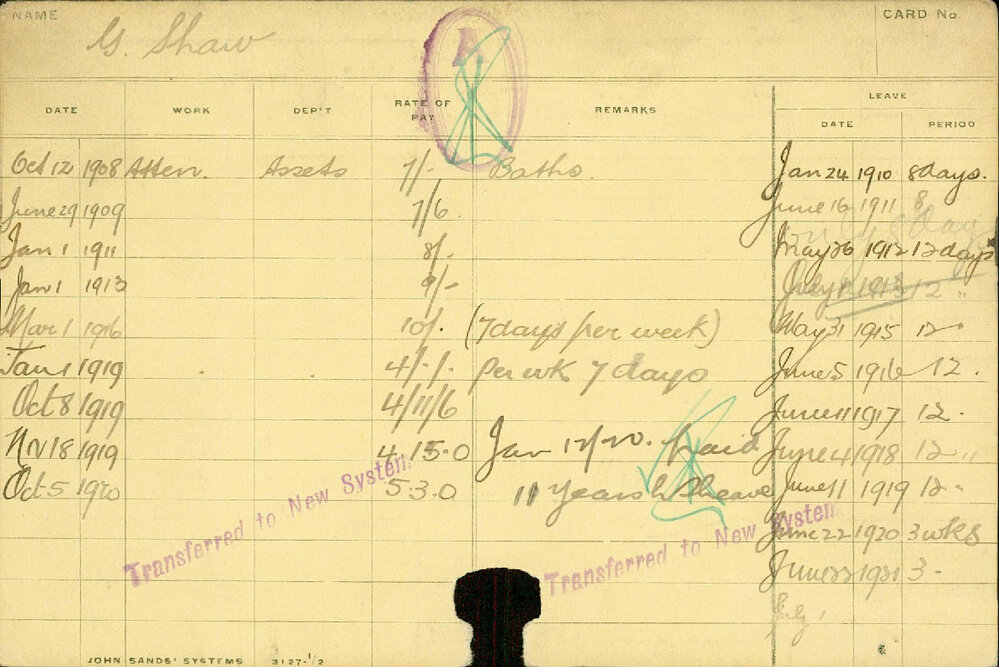 NAME G. Shaw A CARD No.
LEAVE
DATE WORK DEP'T RATE OF PAY REMARKS DATE PERIOD
Oct 12 1908 Atten. Assets 7/- Baths. Jan 24 1910 8 days.
June 29 1909 7/6 June 16 1911 8 days
Jan 1 1911 8/. May 26 1912 12 days
Jan 1 1913 9/- July 1913 12 "
Mar 1 1916 10/. (7 days per week) May 31 1915 12
Jan 1 1919 4/-/. Per wk 7 days June 5 1916 12.
Oct 8 1919 4/11/6 June 11 1917 12.
Nv 18 1919 4.15.0 Jan 12/20. Paid June 4 1918 12 "
Oct 5 1920 5.3.0 11 Years leave June 11 1919 12
Transferred to New System Transferred to New System
June 22 1920 3 wks
June 22 1921 3 -
July
JOHN SANDS' SYSTEMS 3127-1/2